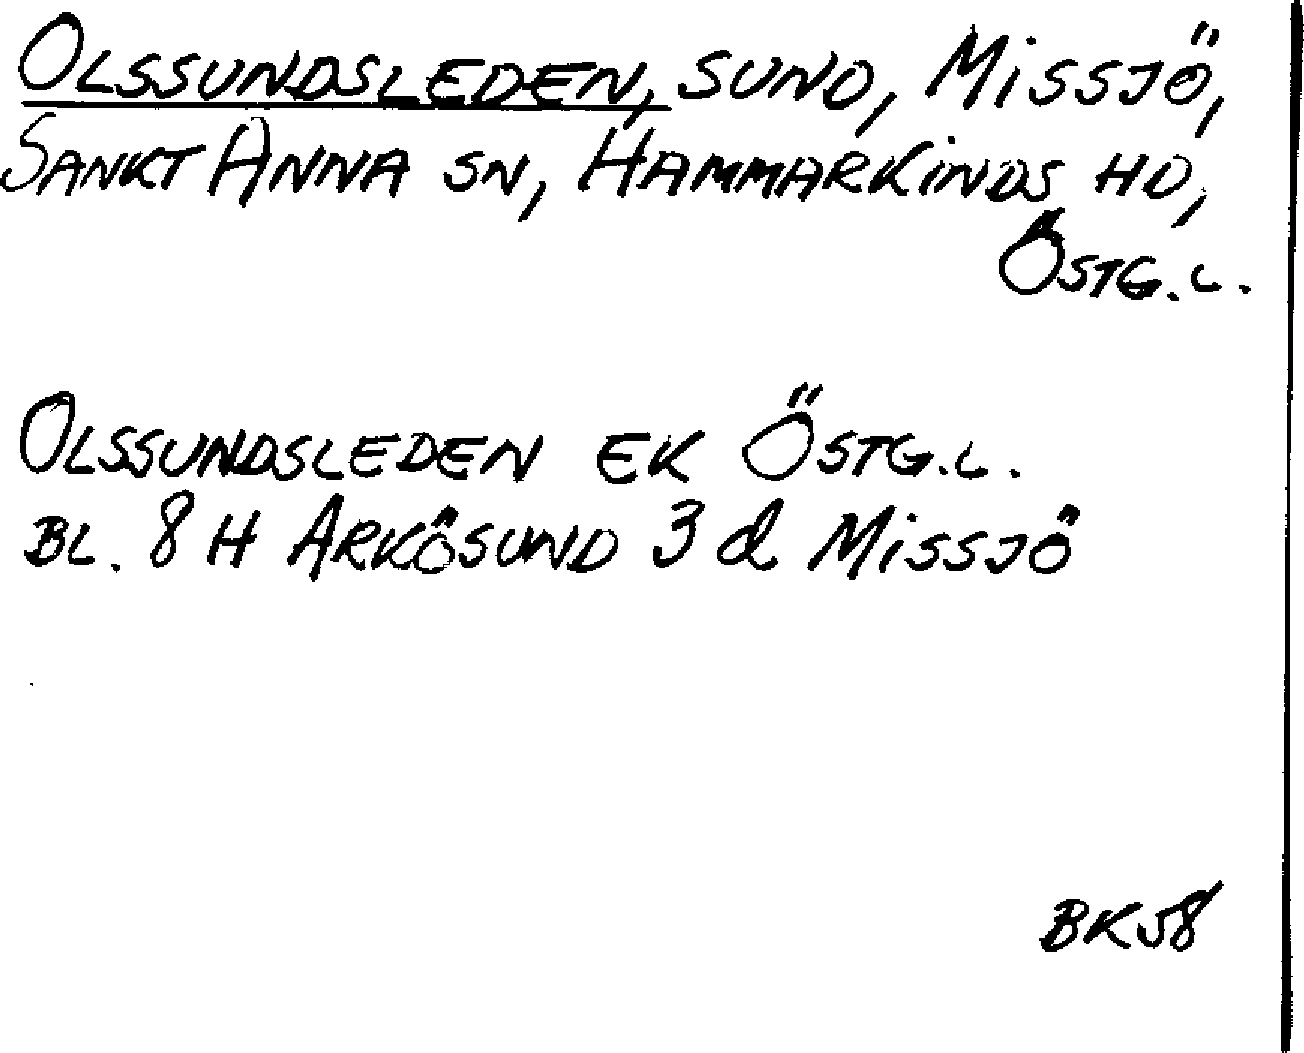 OLSSUNDSLEDEN, SUND, MISSJÖ,
SANKT ANNA SN, HAMMARKINDS HD,
ÖSTG.L.
OLSSUNDSLEDEN EK ÖSTG.L.
BL. 8 H ARKÖSUND 3 d MISSJÖ
BK58